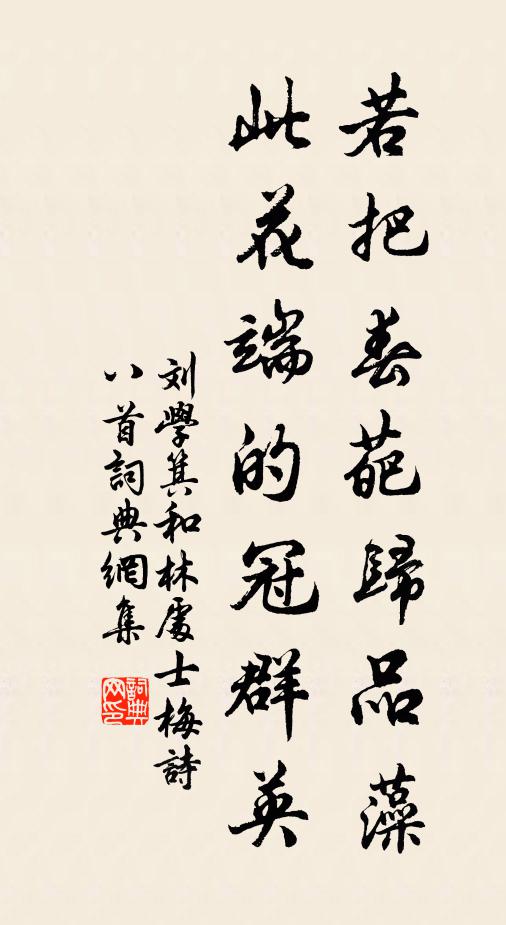 若把春葩歸品藻
此花端的冠群英
刘學箕和林處士梅詩
八首詞典網集
詞典
网印